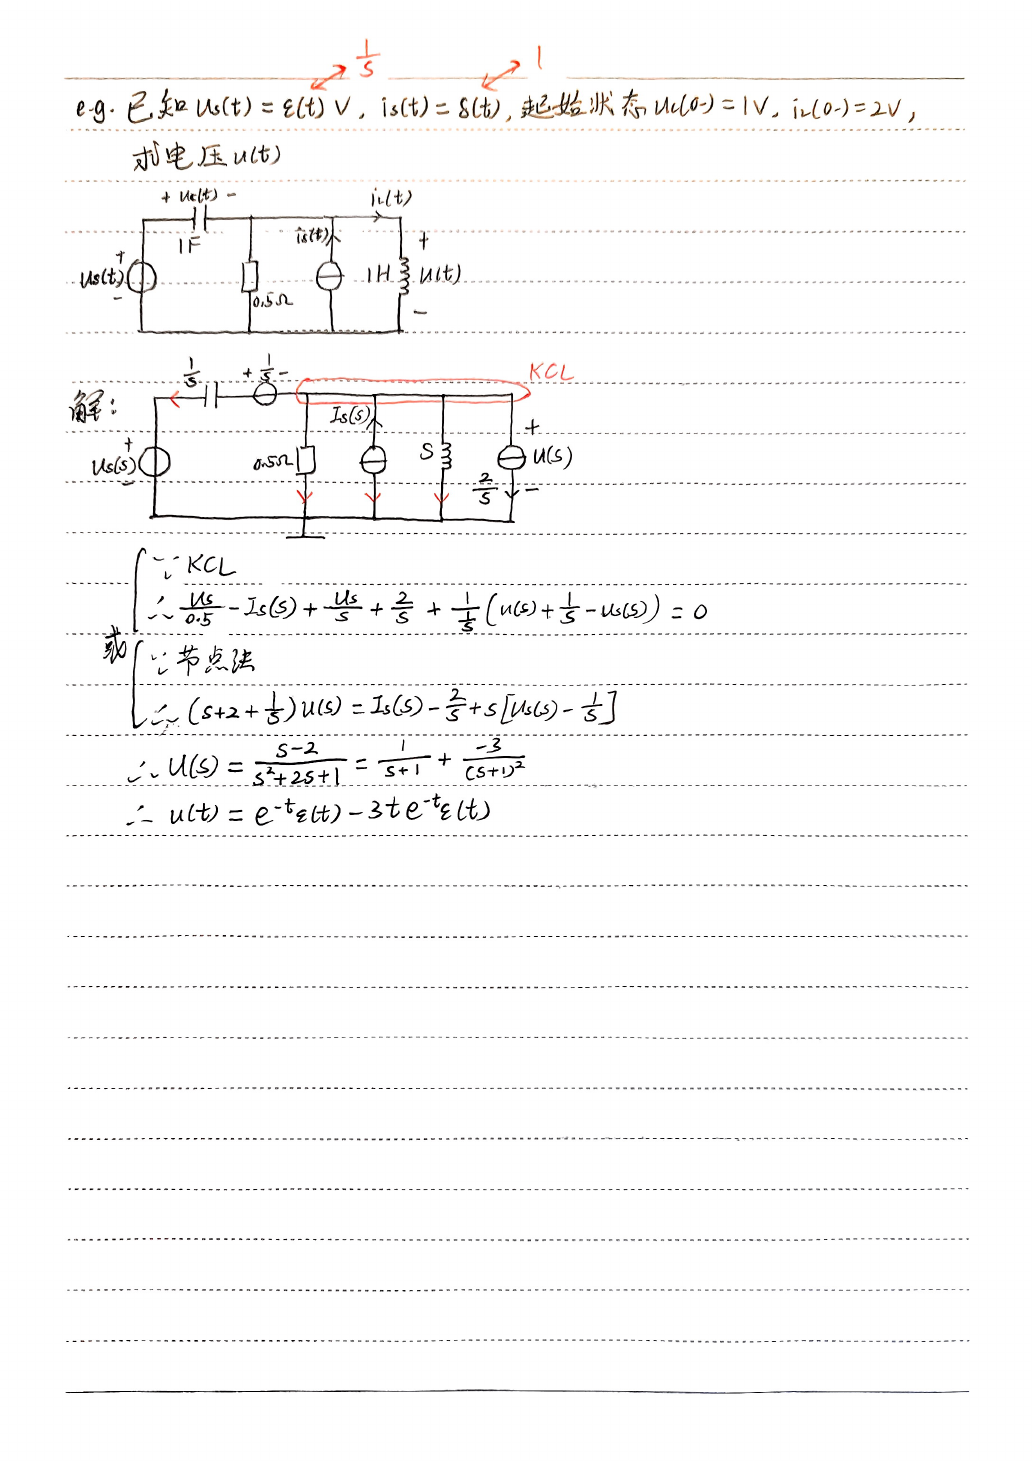 1/s 1
e.g. 已知 us(t) = ε(t) V, is(t) = δ(t), 起始状态 uc(0-) = 1V, iL(0-) = 2V,
求电压 u(t)
+ uc(t) -
iL(t)
1F
is(t)
+
us(t)
-
0.5Ω
1H
+
u(t)
-
1/s
+ 1/s -
KCL
解:
Is(s)
+
Us(s)
-
0.5Ω
S
+
U(s)
-
2/s
∵ KCL
∴ Us/0.5 - Is(s) + Us/s + 2/s + 1/(1/s) (U(s) + 1/s - Us(s)) = 0
或
∵ 节点法
∴ (s+2+1/s) U(s) = Is(s) - 2/s + s[Us(s) - 1/s]
∴ U(s) = (s-2)/(s²+2s+1) = 1/(s+1) + -3/(s+1)²
∴ u(t) = e^-t ε(t) - 3te^-t ε(t)